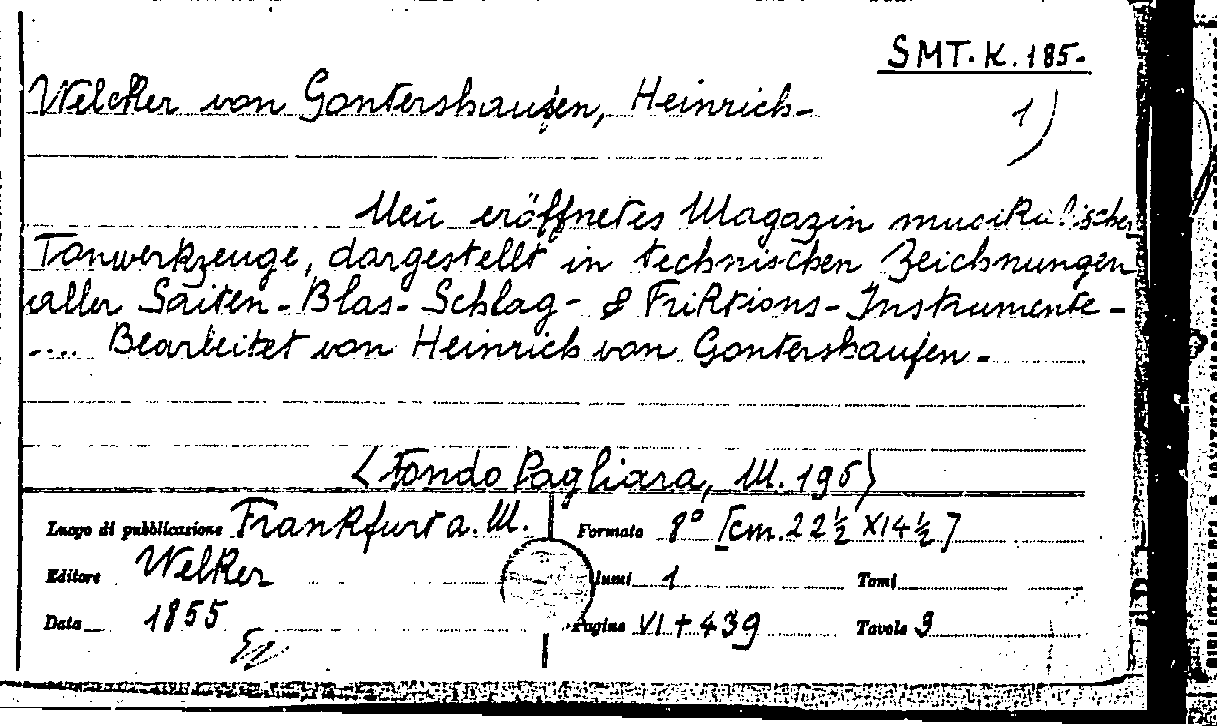 SMT. K. 185.
Welcker von Gontershausen, Heinrich- 1)
Neu eröffnetes Magazin musikalischer
Tonwerkzeuge, dargestellt in technischen Zeichnungen
aller Saiten- Blas- Schlag- & Friktions- Instrumente-
.... Bearbeitet von Heinrich von Gontershausen.-
<Fondo Pagliara, M. 196>
Luogo di pubblicazione Frankfurt a. M. Formato 8° [cm. 22 ½ X 14 ½]
Editore Welker lumi 1 Tomi
Data 1855 Pagine VI + 439 Tavole 3